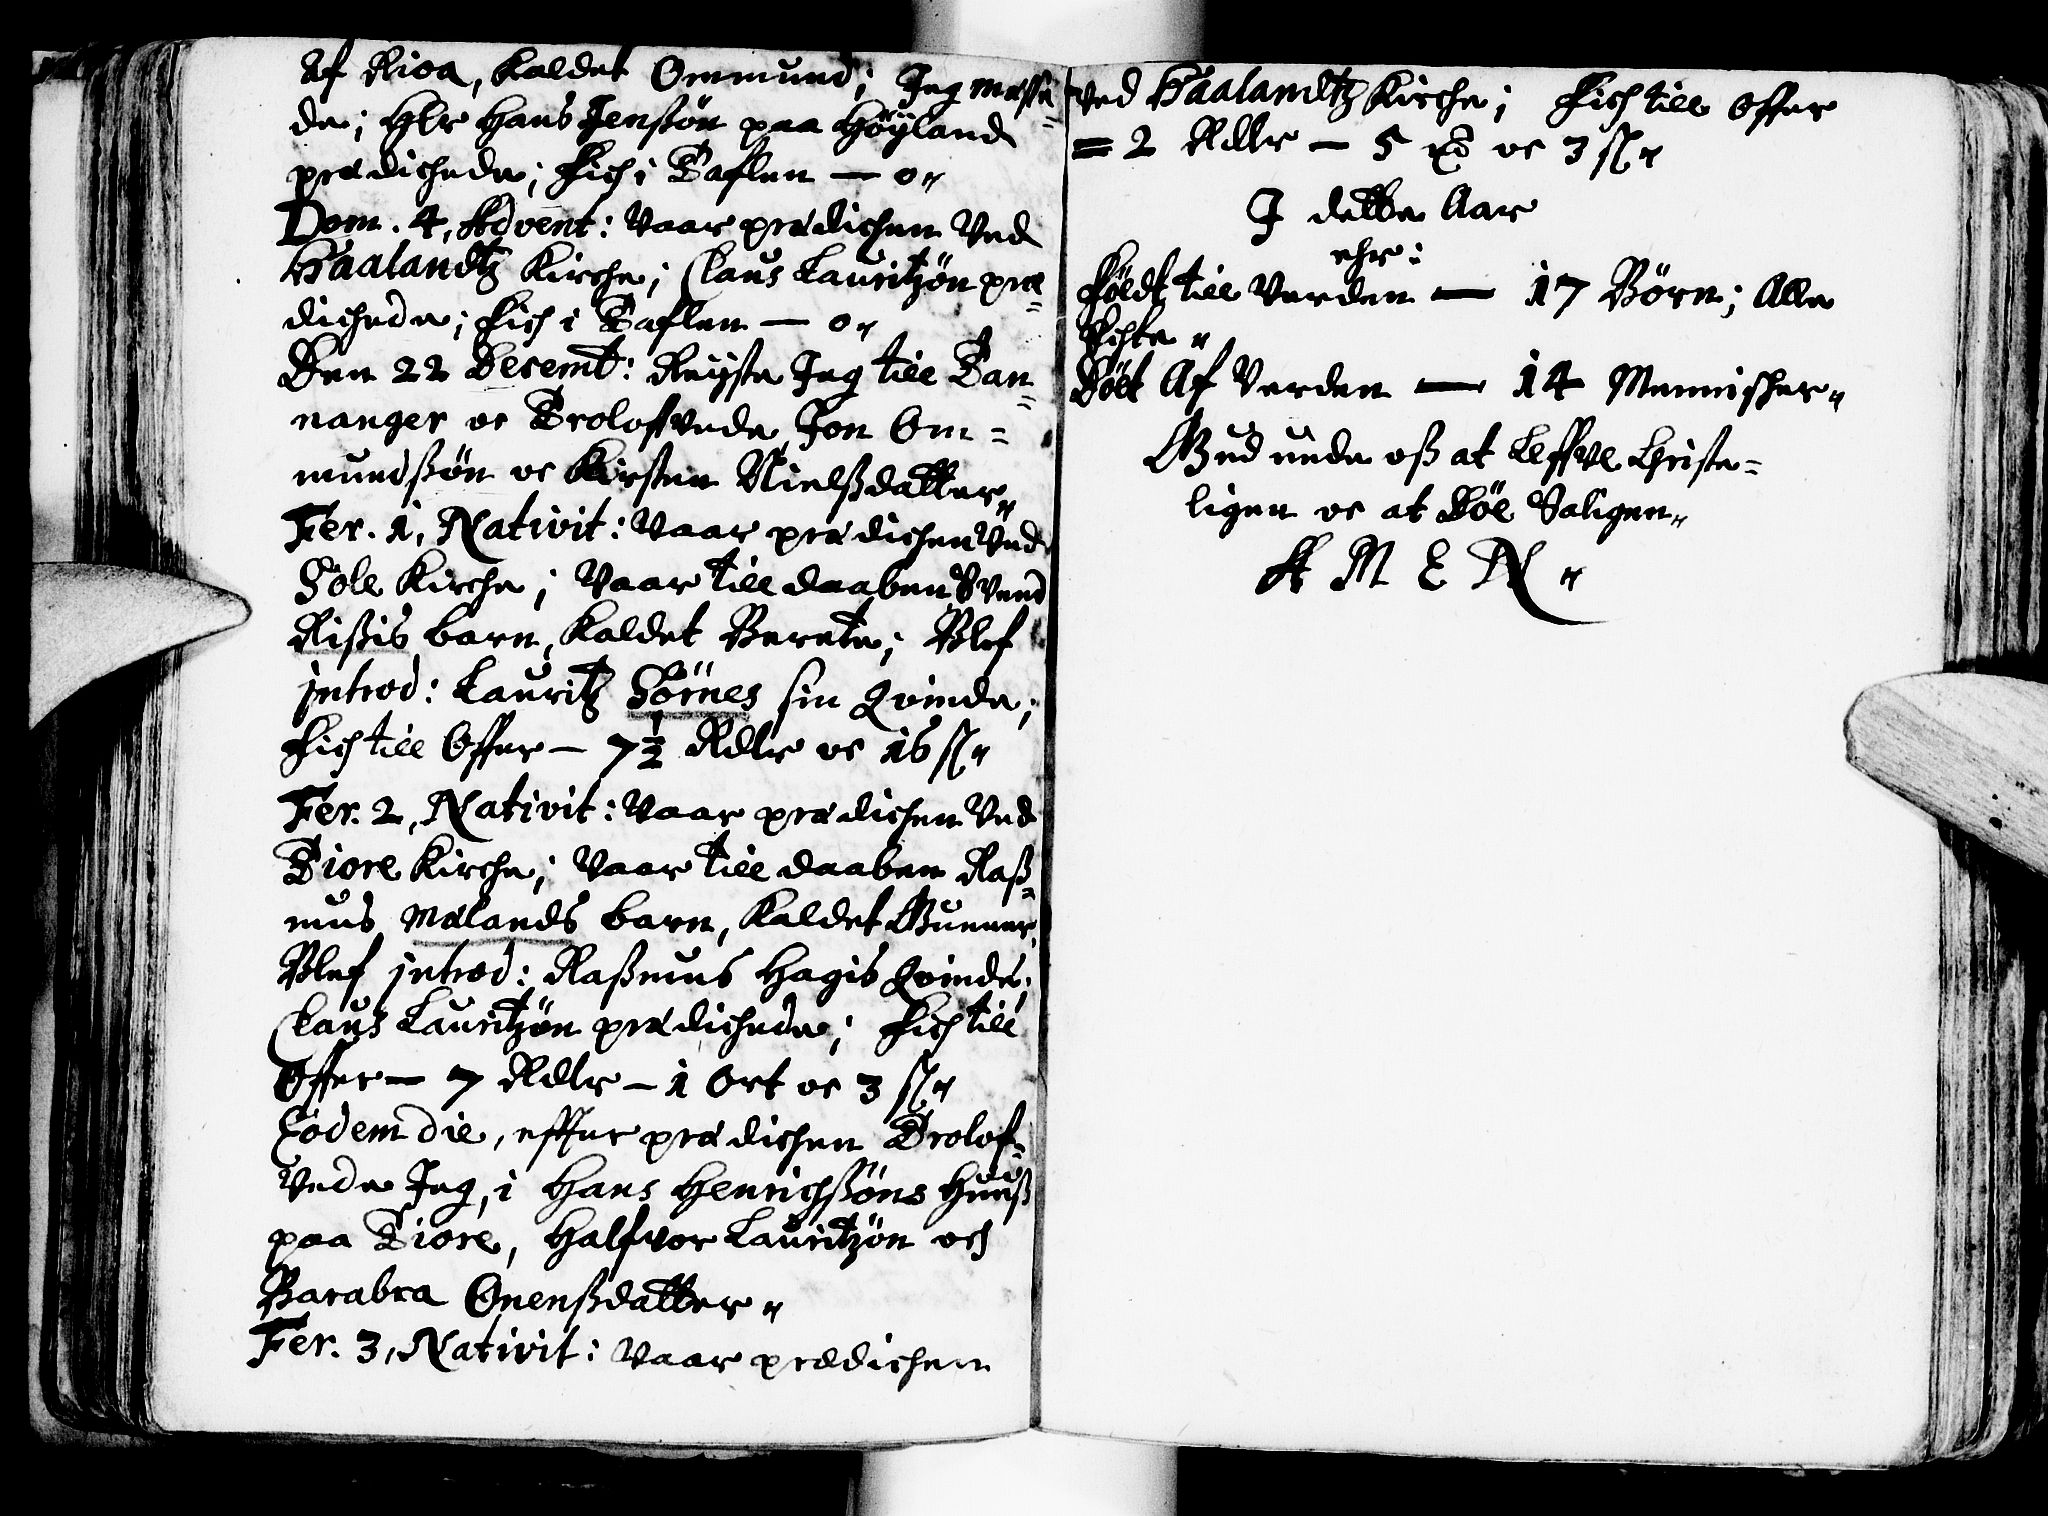 Af Rioa, kaldet Ommund; Jeg meste=
de; Hlr Hans Jenßøn paa Höÿland
prædichede; fich i Taflen — o"
Dom. 4, Advent: Vaar prædichen ved
Haalandtz Kirche; Claus Lauritzøn præ=
dichede; fich i Taflen — o"
Den 22 Decemb: Reÿste Jeg till Tan=
nanger oc Trolofvede Jon Om=
mundßøn oc Kirsten Nielßdatter"
Fer. 1, Nativit: Vaar prædichen ved
Sole Kirche; Vaar till daaben Svend
Rißis barn, kaldet Berete; Blef
introd: Lauritz Sörnes sin Qvinde;
fich till Offer — 7½ Rdlr oc 16 ß"
Fer. 2, Nativit: Vaar prædichen ved
Tiore Kirche; Vaar till daaben Raß=
mus Mælands barn, kaldet Gunner,
Blef introd: Raßmus Hagis Qvinde;
Claus Lauritzøn prædichede; fich till
Offer — 7 Rdlr — 1 Ort oc 3 ß"
Eodem die, effter prædichen Trolof=
vede Jeg, i Hans Henrichßøns Huuß
paa Tiore, Halfvor Lauritzøn och
Barabra Onenßdatter"
Fer. 3, Nativit: Vaar prædichen
ved Haalandtz Kirche; fich till Offer
= 2 Rdlr — 5 oc 3 ß"
I dette Aar
ehr:
födt till Verden — 17 Børn; Alle
Echte"
Döet Af Verden — 14 Mennischer"
Gud unde oß at Leffve Christe=
ligen oc at Döe Saligen"
A M E N"